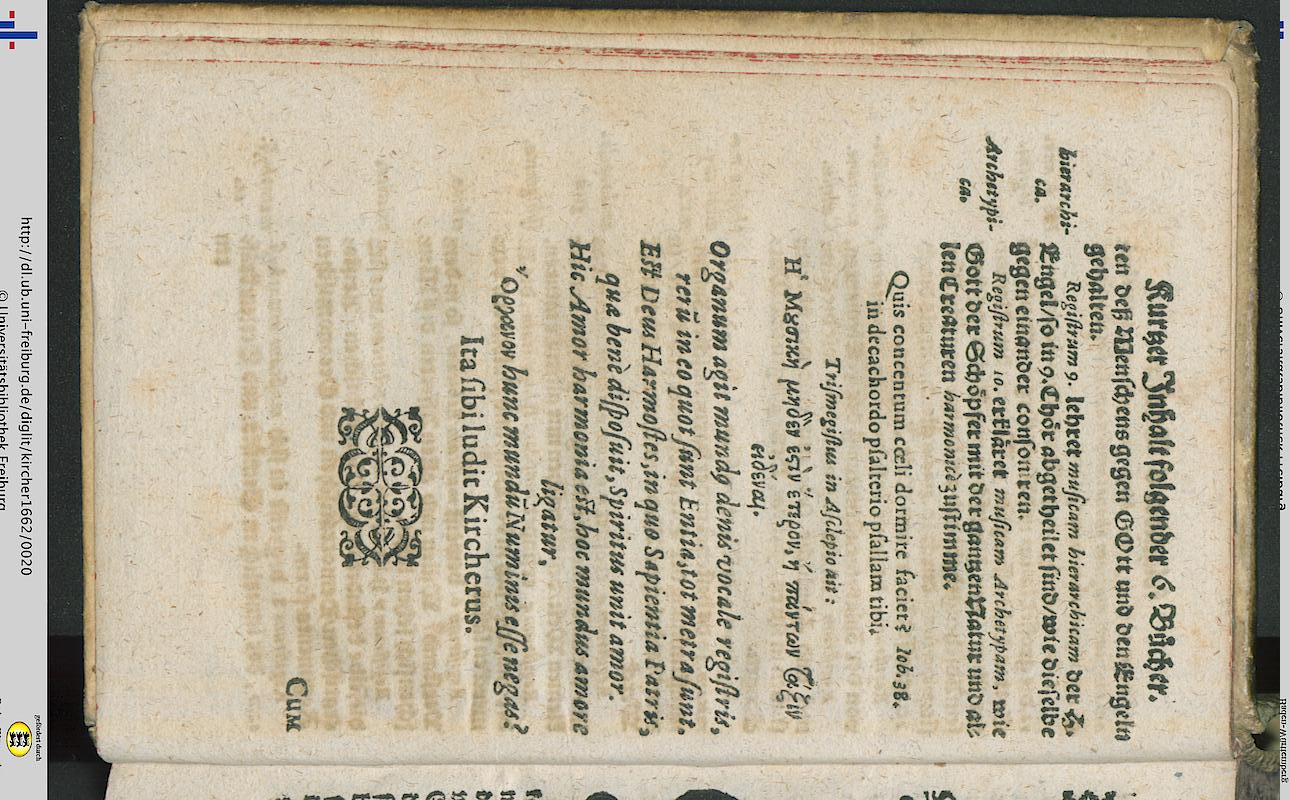 Kurtzer Inhalt folgender 6. Bücher.
ten deß Menschens gegen GOtt und den Engeln
gehalten.
hierarchi-
ca.
Registrum 9. lehret musicam hierarchicam der H.
Engel/ so in 9. Chör abgetheilet sind/ wie dieselbe
gegen einander consoniren.
Archetypi-
ca.
Registrum 10. erkläret musicam Archetypam, wie
Gott der Schöpfer mit der gantzen Natur und al-
len Creaturen harmonicè zustimme.
Quis concentum cœli dormire faciet? Iob. 38.
in decachordo psalterio psallam tibi.
Trismegistus in Asclepio ait:
Ἡ Μȣσικὴ μηδεν ἐςὶν ἕτερον, ἢ πάντων τάξιν
εἰδέναι.
Organum agit mundꝰ denis vocale registris,
rerũ in eo quot sunt Entia, tot metra sunt.
Est Deus Harmostes, in quo Sapientia Patris,
quæ benè disposuit, Spiritus unit amor.
Hic Amor harmonia est, hoc mundus amore
ligatur,
Ὄργανον hunc mundũ Numinis esse negas?
Ita sibi ludit Kircherus.
Cum
http://dl.ub.uni-freiburg.de/diglit/kircher1662/0020
© Universitätsbibliothek Freiburg
gefördert durch